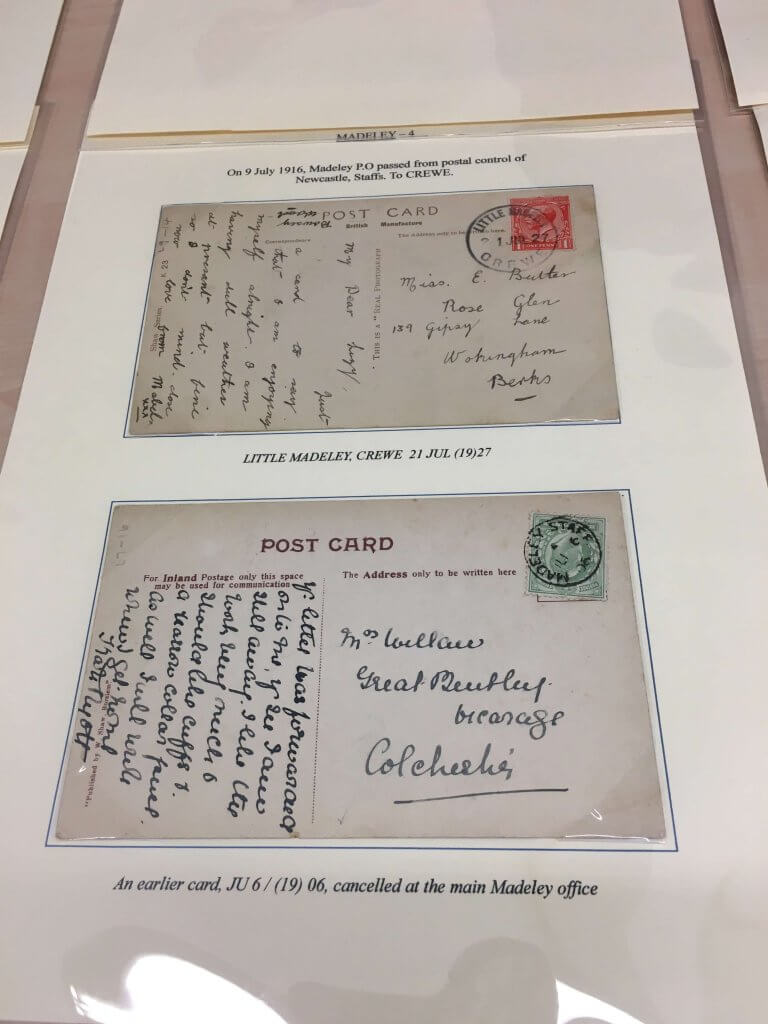 MADELEY – 4
On 9 July 1916, Madeley P.O passed from postal control of
Newcastle, Staffs. To CREWE.
POST CARD
British Manufacture
Correspondence
The Address only to be
here.
LITTLE
21 JUL 27
CREWE
THIS IS A "REAL PHOTOGRAPH
My Dear
Just
a card to say
that I am enjoying
myself alright. I am
having dull weather
at present but fine
so I don't mind. close
now love from Mabel
xxx
Miss. E. Butler
Rose Glen
139 Gipsy Lane
Wokingham
Berks
LITTLE MADELEY, CREWE 21 JUL (19)27
POST CARD
For Inland Postage only this space
may be used for communication
The Address only to be written here
MADELEY STAFF
yr letter was forwarded
on to me, yr see I am
still away. I like the
work very much &
should like cuffs &
a narrow collar
as well I will write
when I get home
"Published by
Mrs
Great Bentley
vicarage
Colchester
An earlier card, JU 6 / (19) 06, cancelled at the main Madeley office